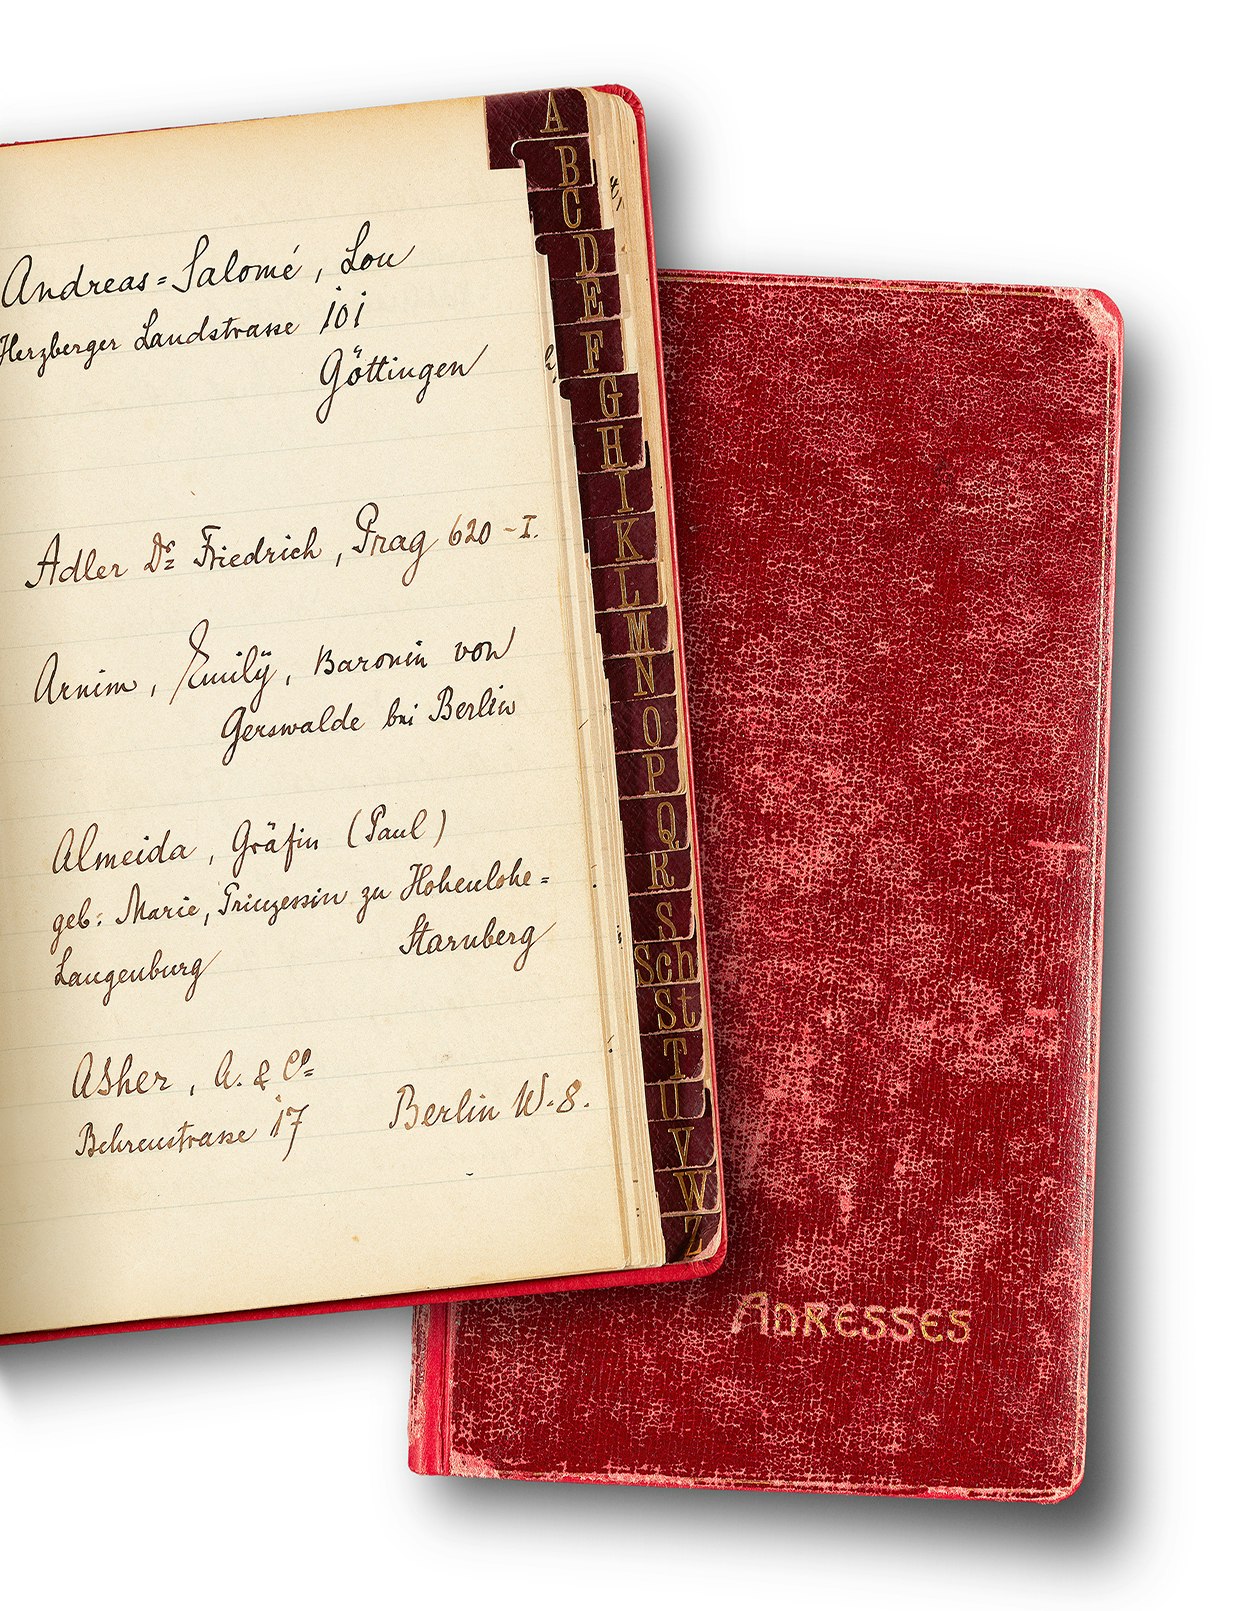 Andreas=Salomé, Lou
Herzberger Landstrasse 101
Göttingen
Adler Dr Friedrich, Prag 620-I.
Arnim, Emilÿ, Baronin von
Gerswalde bei Berlin
Almeida, Gräfin (Paul)
geb: Marie, Prinzessin zu Hohenlohe=
Langenburg Starnberg
Asher, A. & Co
Behrenstrasse 17 Berlin W.8.
A
B
C
D
E
F
G
H
I
K
L
M
N
O
P
Q
R
S
Sch
St
T
U
V
W
Z
ADRESSES